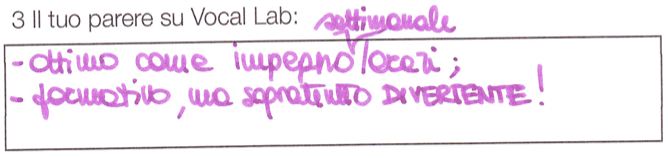 3 Il tuo parere su Vocal Lab:
settimanale
- ottimo come impegno/orari;
- formativo, ma sopratutto DIVERTENTE!